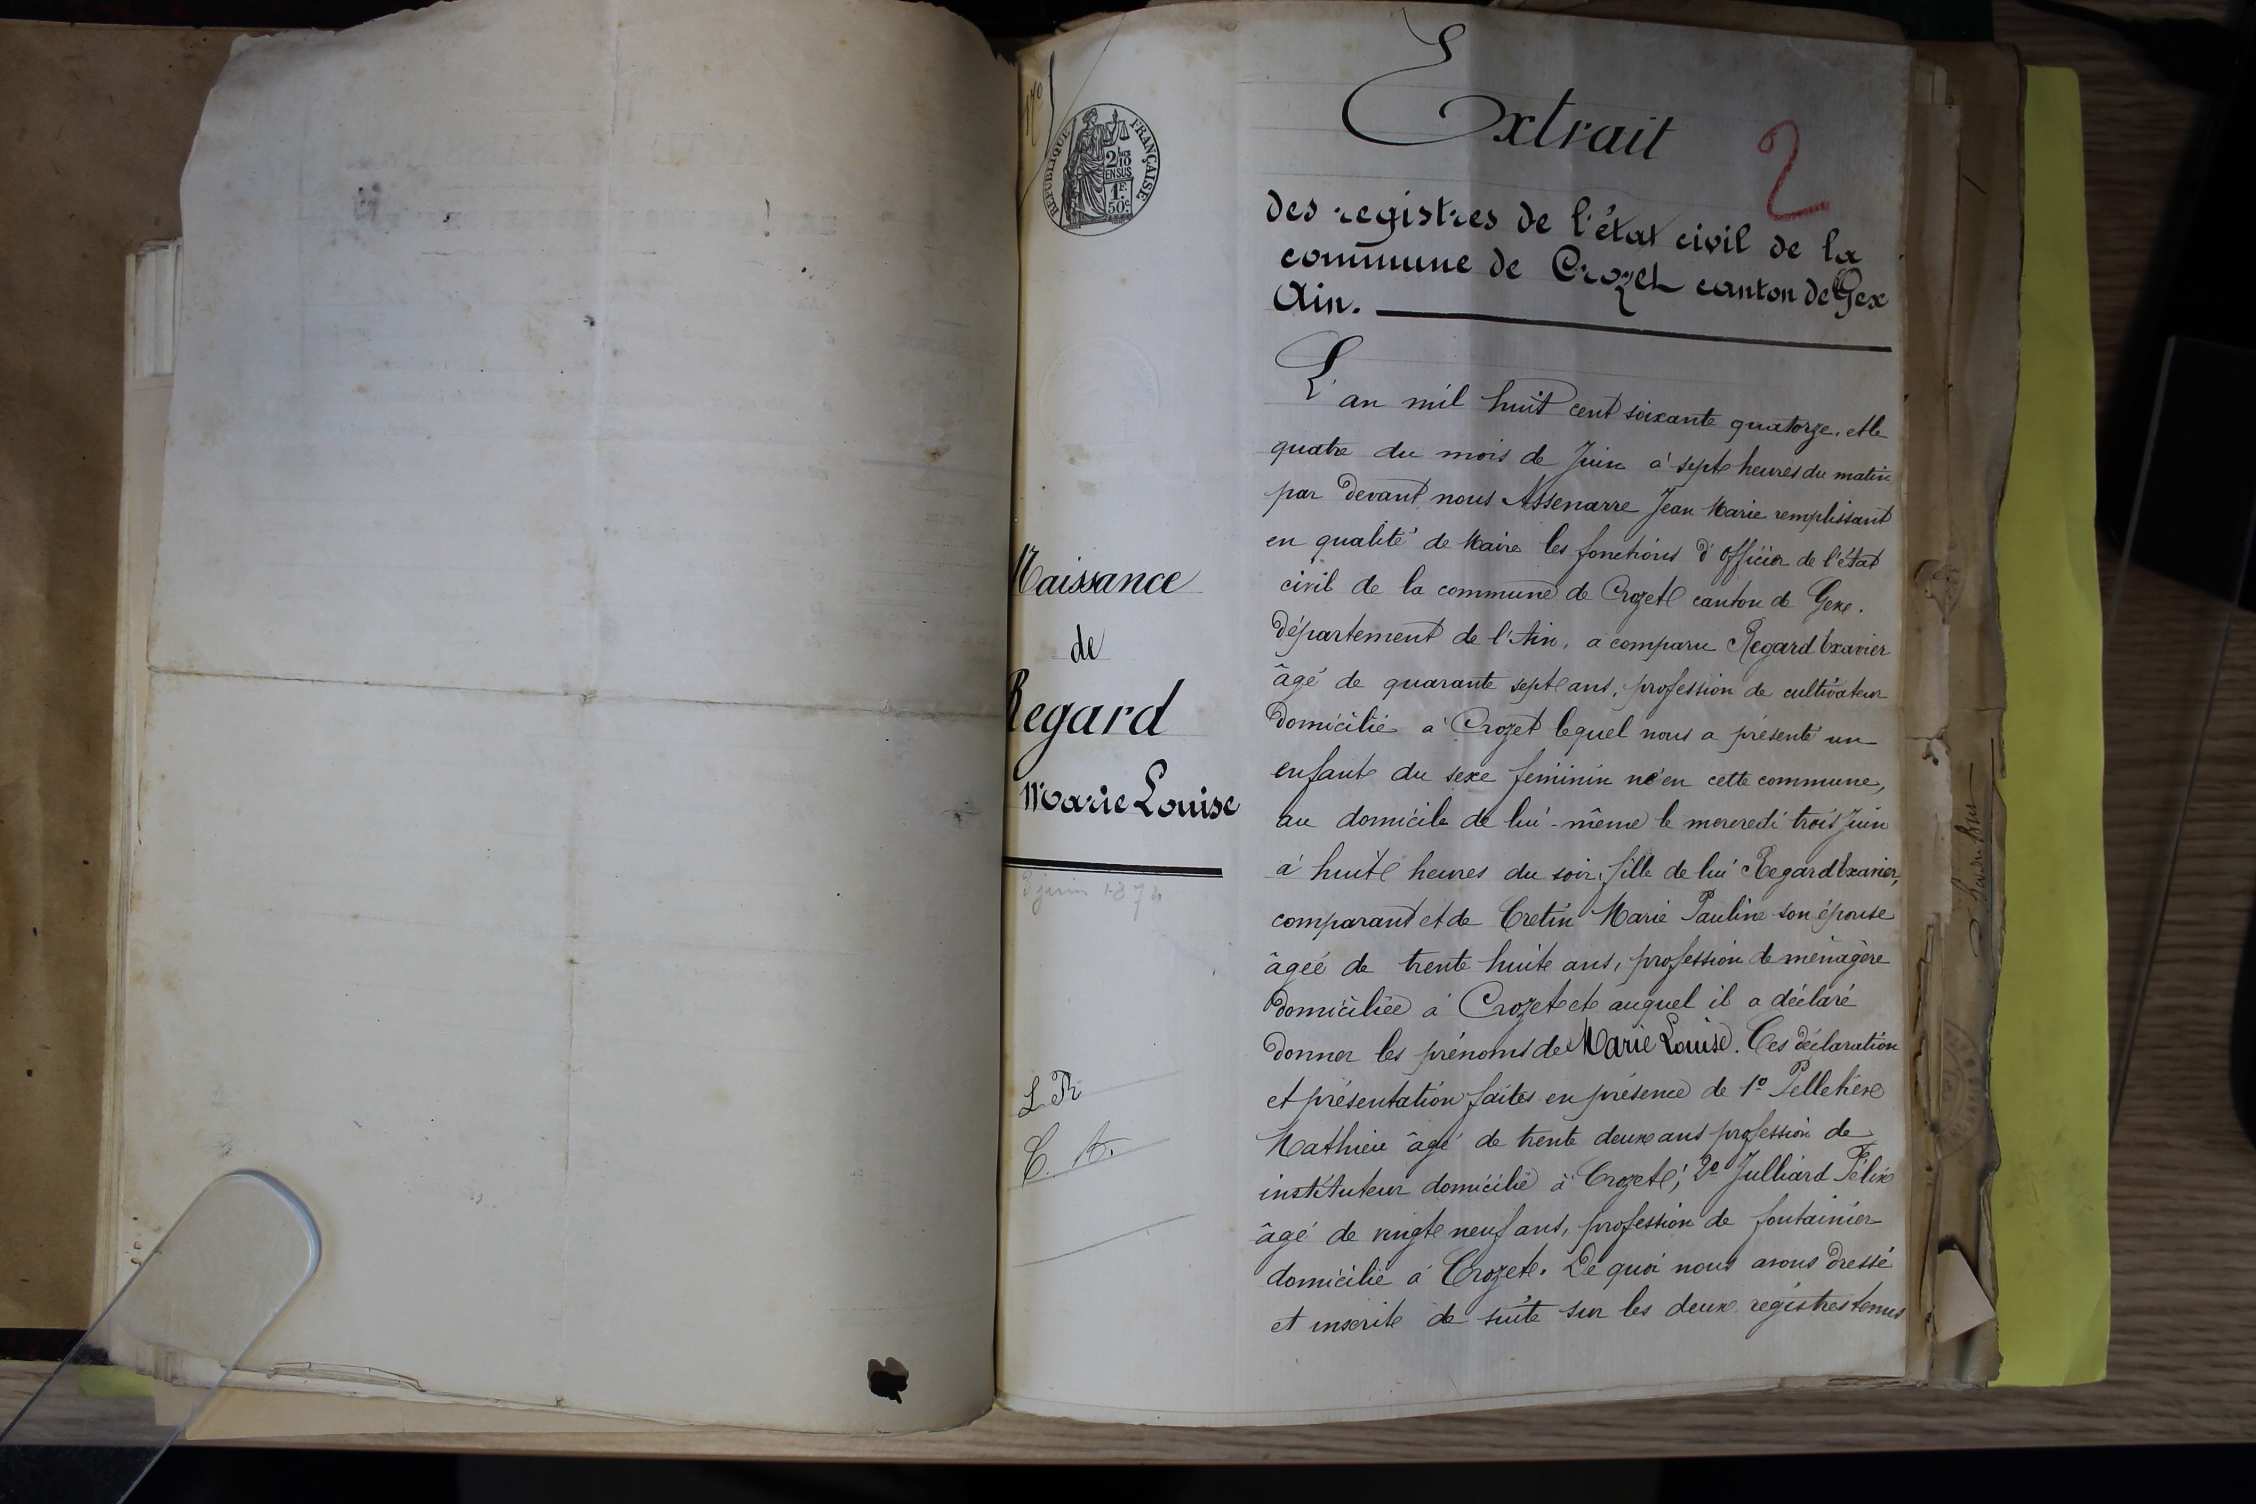 170
RÉPUBLIQUE FRANÇAISE
2/10
EN SUS
1F.
50c
Extrait
2
des registres de l'état civil de la
commune de Crozet canton de Gex
Ain.
Naissance
de
Regard
Marie Louise
3 juin 1874
L. R
C. A.
L'an mil huit cent soixante quatorze, et le
quatre du mois de Juin à sept heures du matin
par devant nous Assenarre Jean Marie remplissant
en qualité de Maire les fonctions d'officier de l'état
civil de la commune de Crozet canton de Gex.
Département de l'Ain, a comparu Regard Exavier
âgé de quarante sept ans, profession de cultivateur
domicilié à Crozet lequel nous a présenté un
enfant du sexe féminin né en cette commune,
au domicile de lui-même le mercredi trois Juin
à huit heures du soir, fille de lui Regard Exavier,
comparant et de Cretin Marie Pauline son épouse
âgée de trente huit ans, profession de ménagère
domiciliée à Crozet et auquel il a déclaré
donner les prénoms de Marie Louise. Ces déclaration
et présentation faites en présence de 1º Pelletier
Mathieu âgé de trente deux ans profession de
instituteur domicilié à Crozet; 2º Julliard Félix
âgé de vingt neuf ans, profession de fontainier
domicilié à Crozet. De quoi nous avons dressé
et inscrit de suite sur les deux registres tenus